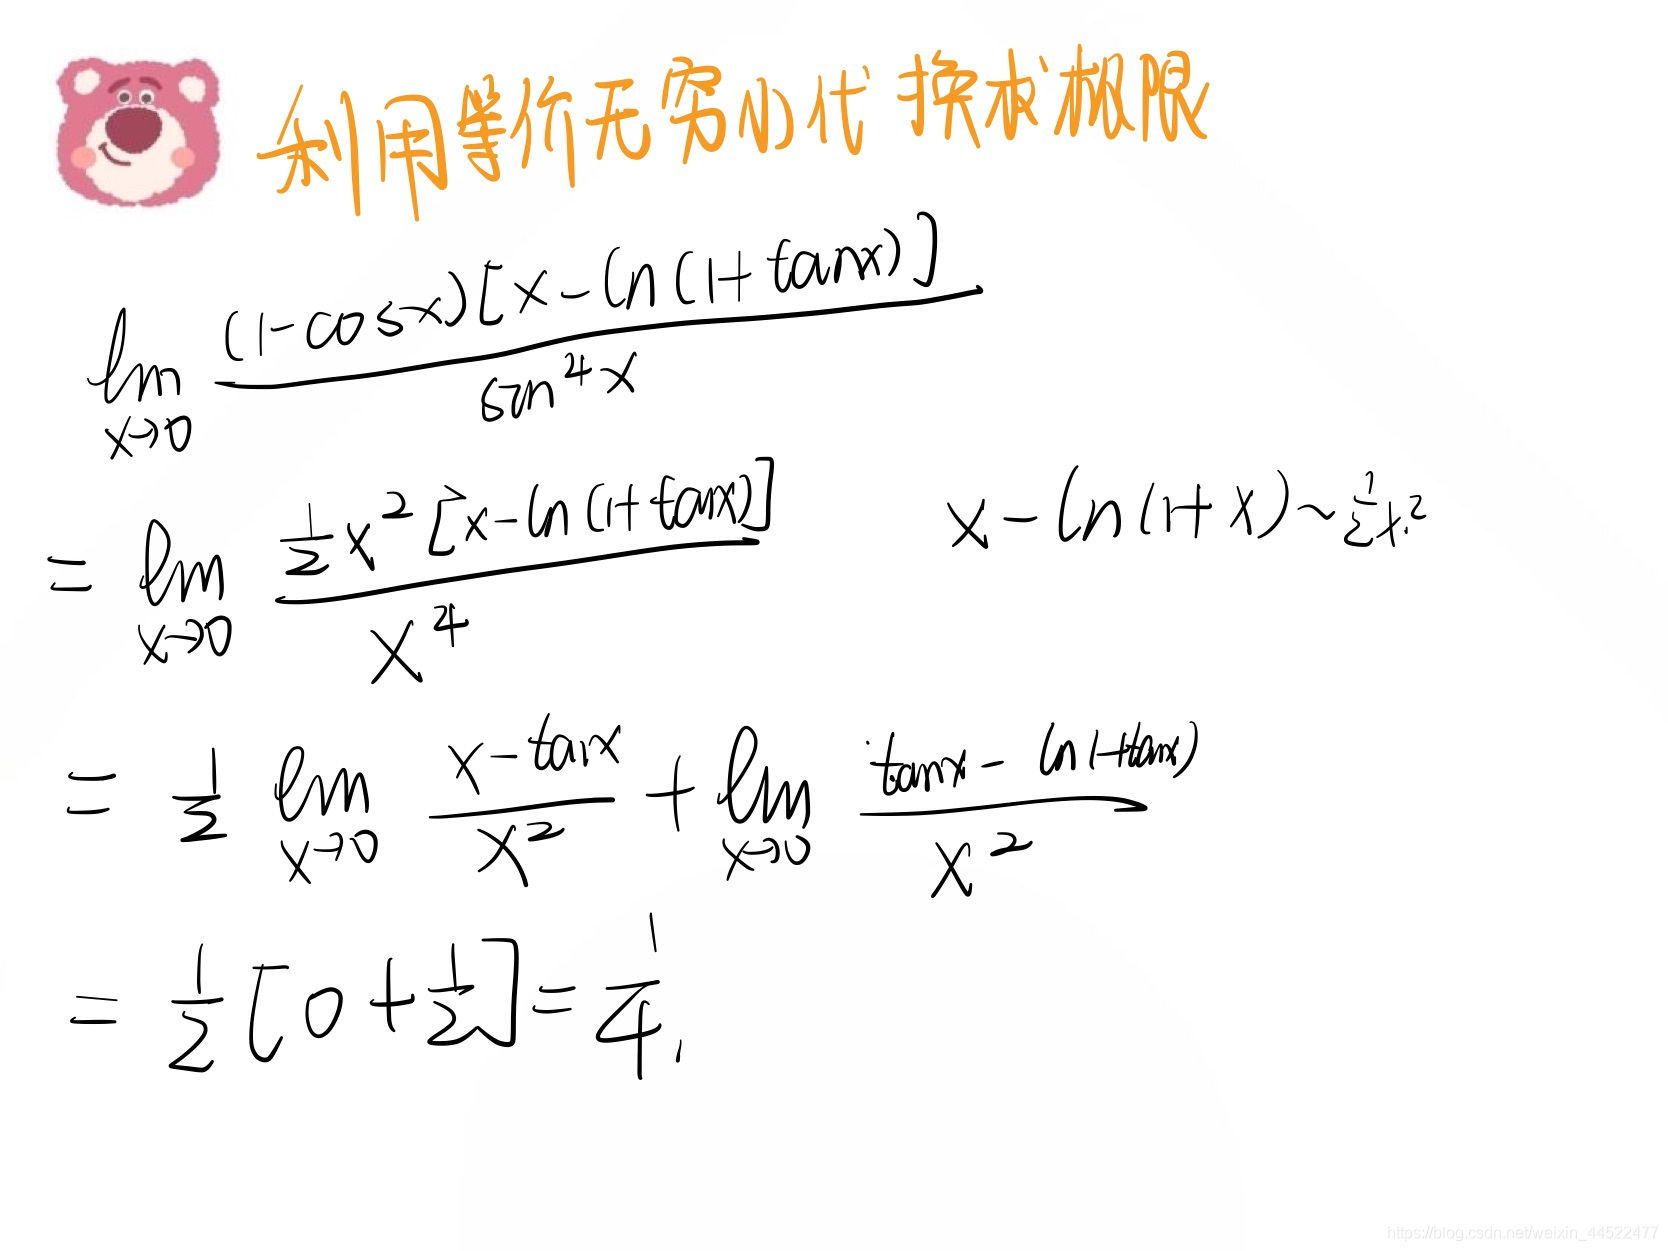 利用等价无穷小代换求极限
lim x→0 (1-cosx)[x-ln(1+tanx)] / sin⁴x
= lim x→0 ½x²[x-ln(1+tanx)] / x⁴
x-ln(1+x)~½x²
= ½ lim x→0 (x-tanx)/x² + lim x→0 (tanx-ln1+tanx)/x²
= ½[0+½]=¼.
https://blog.csdn.net/weixin_44522477